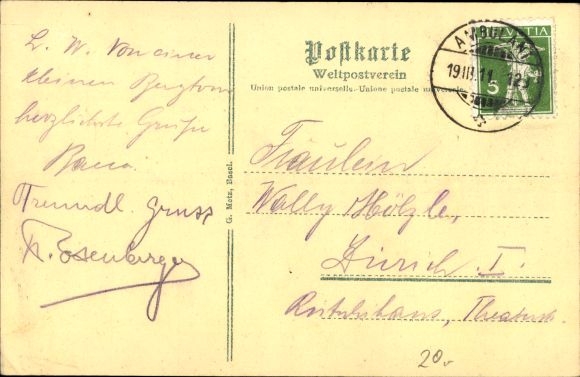 L. W. Von einer
kleinen Bergtour
herzlichste Grüsse
Freundl. Gruss
R. Rosenberger
G. Metz, Basel.
Postkarte
Weltpostverein
Union postale universelle.-Unione postale universale
AMBULANT
19.III.11
HELVETIA
5
Fräulein
Wally Hölzle,
Zürich I.
20.-